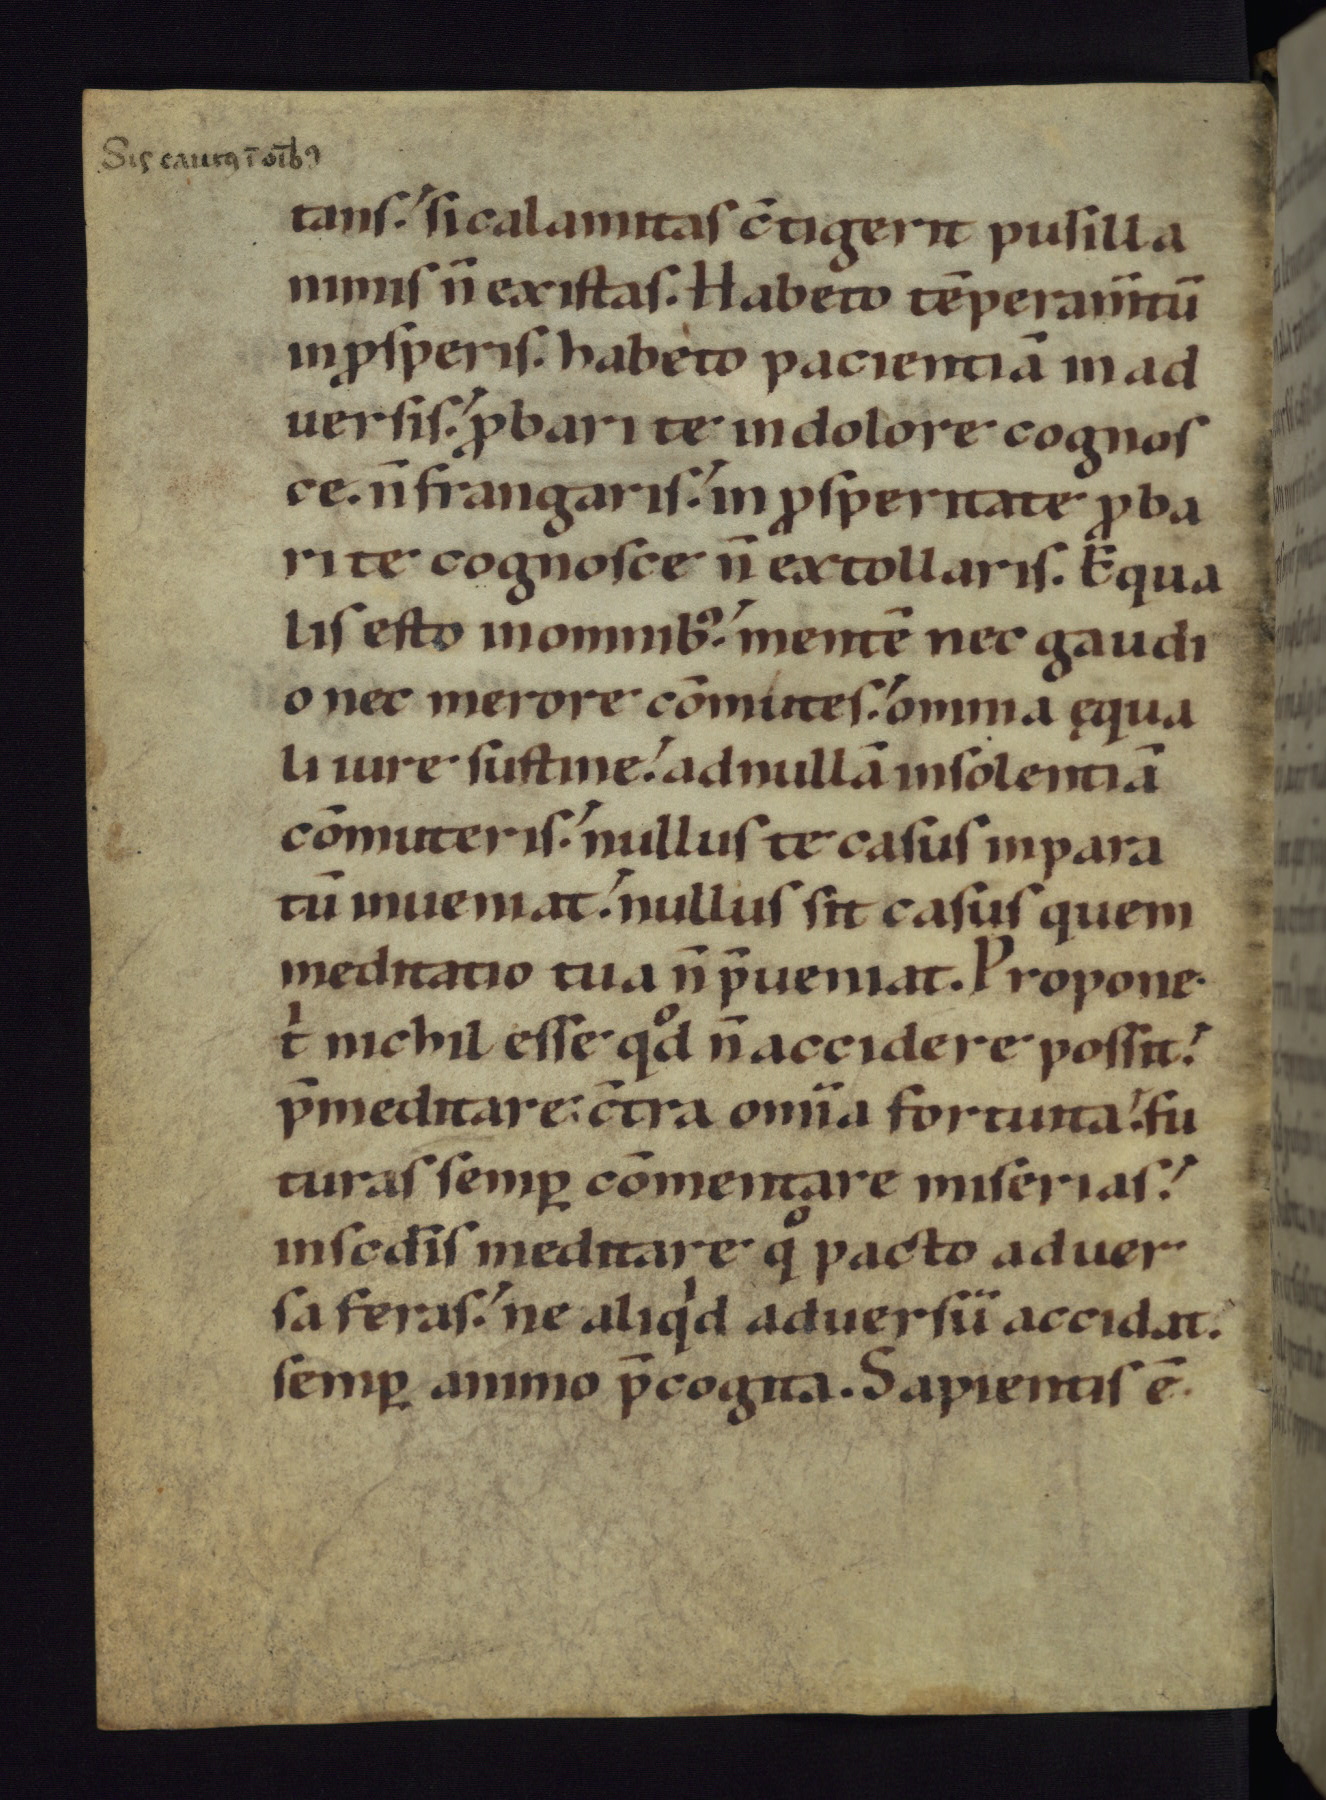 Sis cautꝰ ī oībꝰ
tans. si calamitas c̄tigerit pusilla
nimis n̄ existas. Habeto tēperam̄tū
in ꝓsperis. habeto pacientiā in ad
uersis. ꝓbari te in dolore cognos
ce. n̄ frangaris. in ꝓsperitate ꝓba
ri te cognosce n̄ extollaris. Equa
lis esto in omnibꝰ. mentē nec gaudi
o nec merore cōmutes. omnia ęqua
li iure sustine. ad nullā insolentiā
cōmuteris. nullus te casus inpara
tū inueniat. nullus sit casus quem
meditatio tua n̄ p̄ueniat. Propone
tⁱ nichil esse qͦd n̄ accidere possit.
p̄meditare c̄tra om̄ia fortuita. fu
turas semꝑ cōmentare miserias.
in scdīs meditare qͦ pacto aduer
sa feras. ne aliqⁱd aduersū accidat.
semꝑ animo p̄cogita. Sapientis ē.